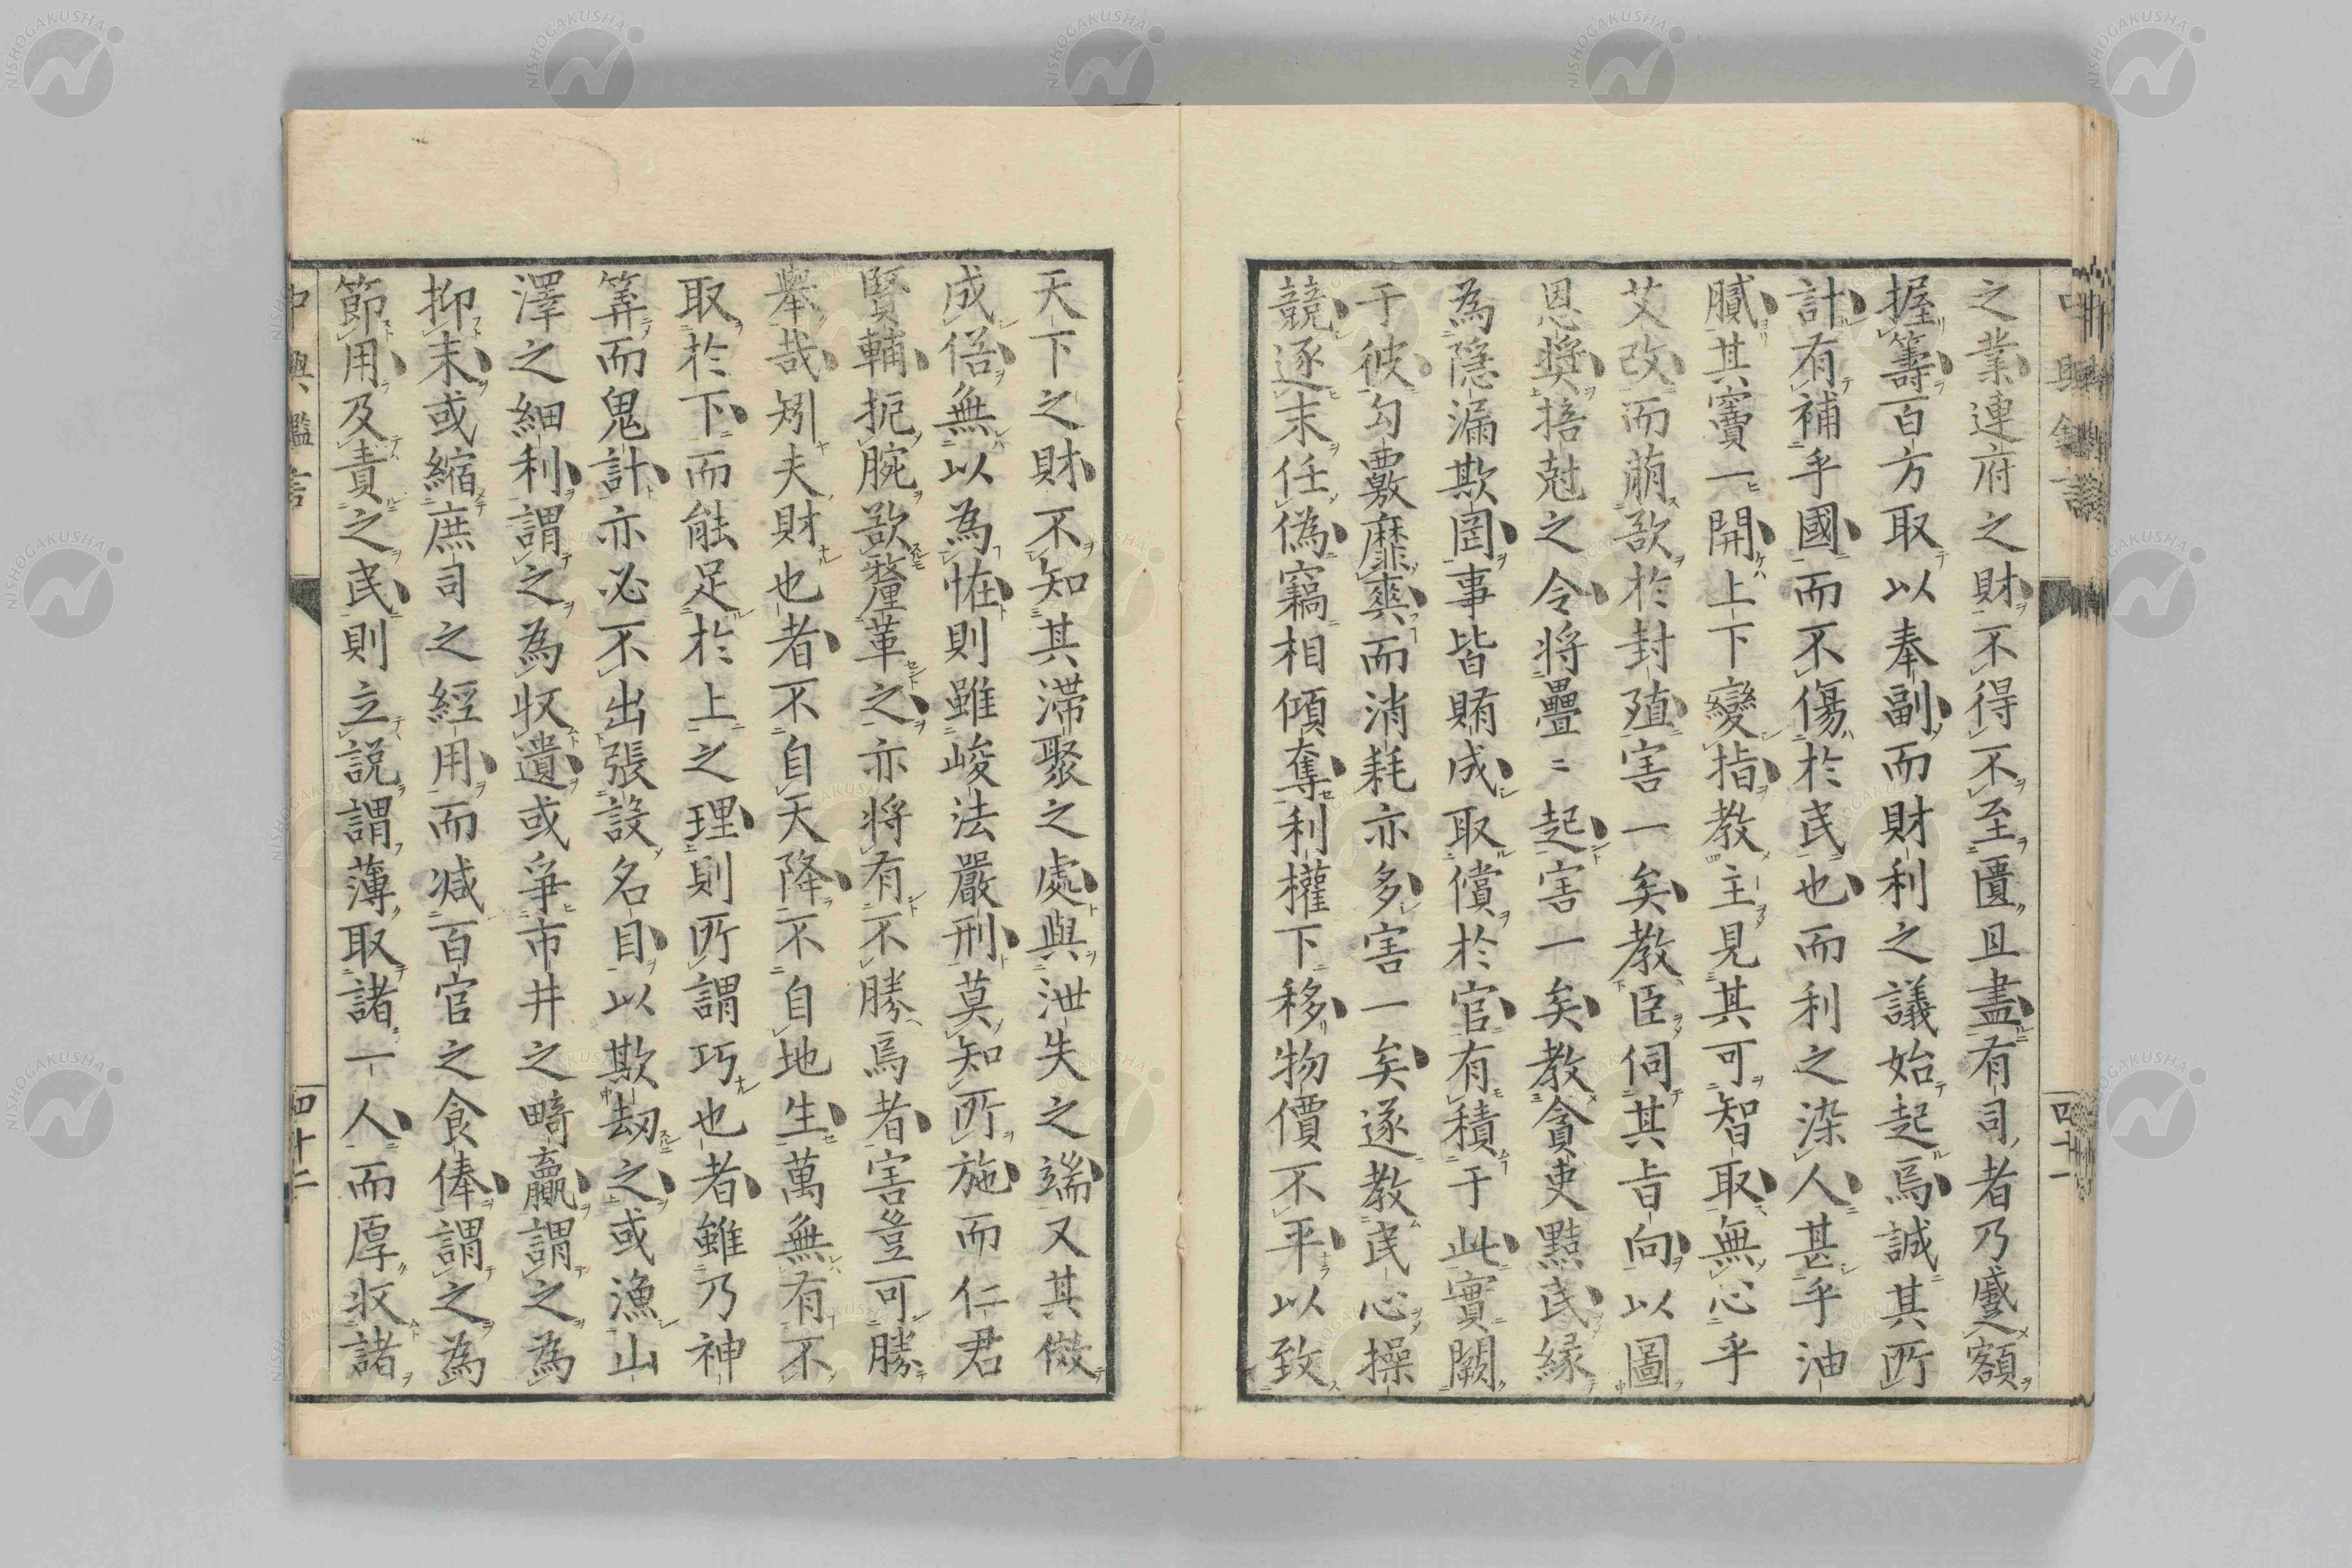 之業連府之財不得不至匱且盡有司者乃蹙額
握籌百方取以奉副而財利之議始起焉誠其所
計有補乎國而不傷於民也而利之染人甚乎油
膩其竇一開上下變指教主見其可智取無心乎
艾改而萌欲於封殖害一矣教臣伺其旨向以圖
恩奬掊尅之令將疊〻起害一矣教貪吏黠民緣
為隱漏欺罔事皆賄成取償於官有積于此實闕
于彼勾覈靡爽而消耗亦多害一矣遂教民心操
競逐末任偽竊相傾奪利權下移物價不平以致
天下之財不知其滯聚之處與泄失之端又其倣
成倍無以為恠則雖峻法嚴刑莫知所施而仁君
賢輔扼腕欲釐革之亦將有不勝焉者害豈可勝
舉哉矧夫財也者不自天降不自地生萬無有不
取於下而能足於上之理則所謂巧也者雖乃神
筭而鬼計亦必不出張設名目以欺刼之或漁山
澤之細利謂之為收遺或爭市井之畸贏謂之為
抑末或縮庶司之經用而減百官之食俸謂之為
節用及責之民則立說謂薄取諸一人而厚收諸
中興鑑言
四十二
四十一
NISHOGAKUSHA